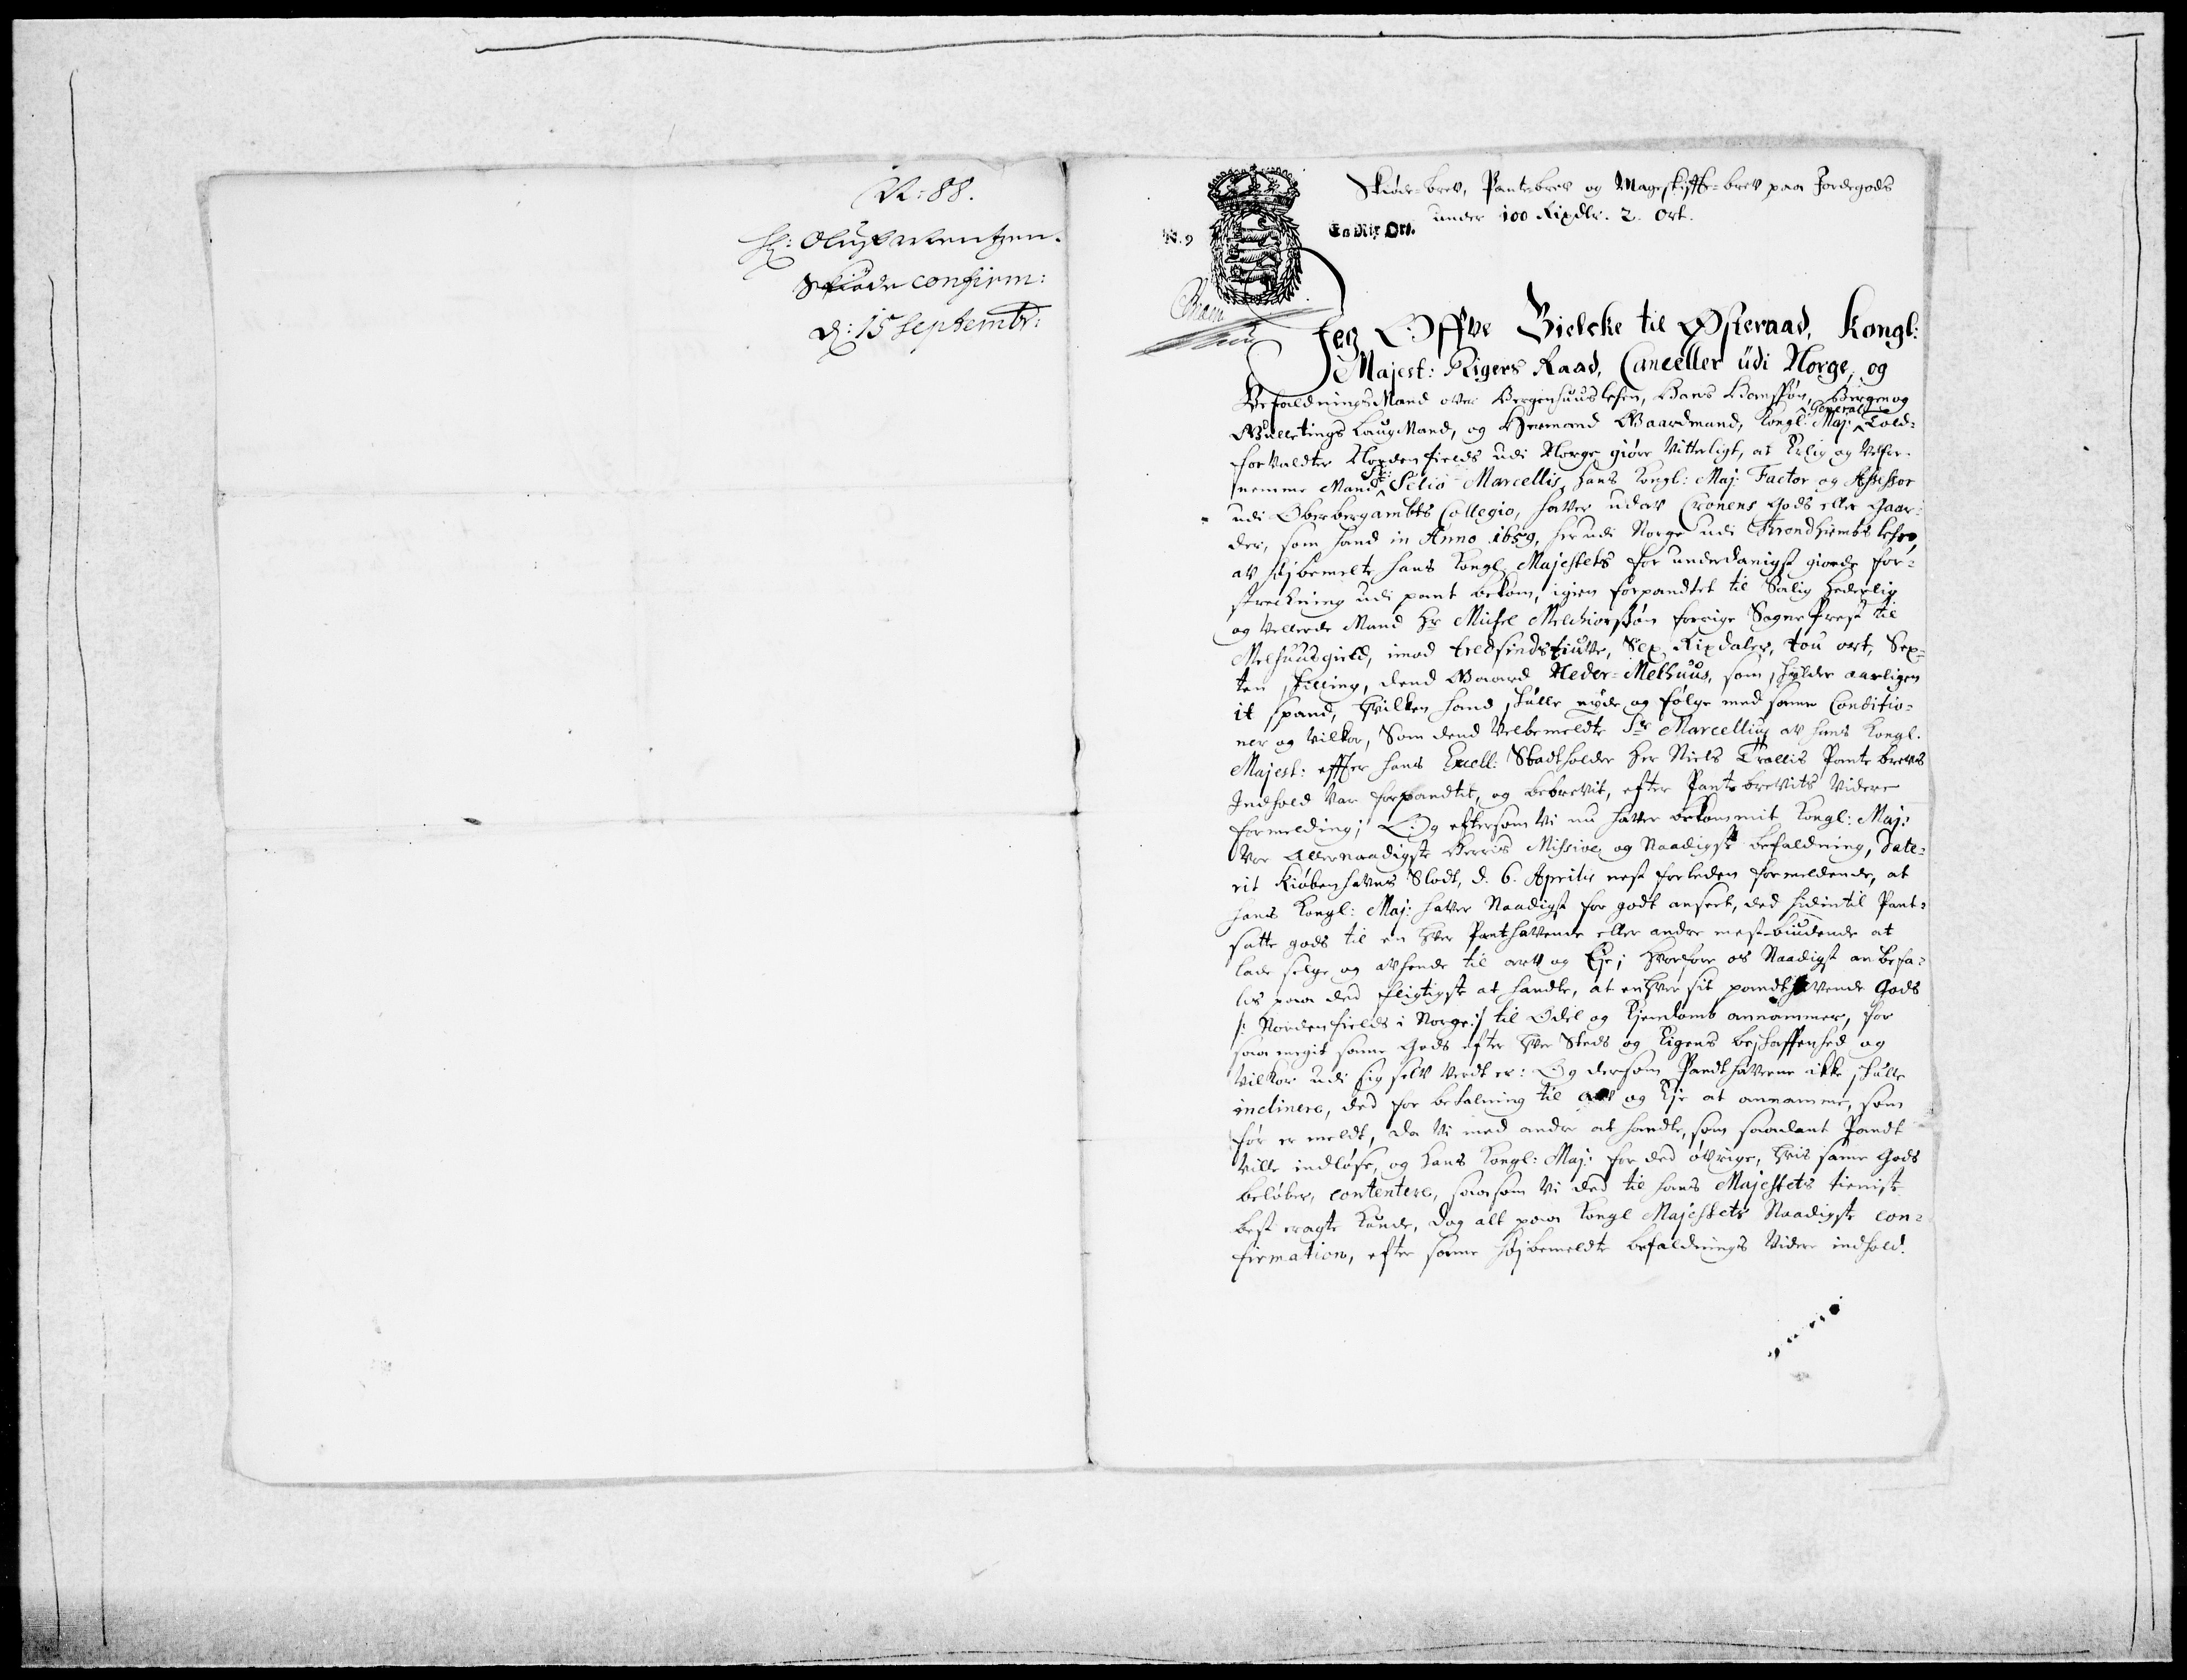 N: 88.
Hr: Oluf Arentzen.
Skiøde confirm:
d: 15 Septembr:
Skiøde-brev, Pantebrev og Mageskiffte-brev paa Jordegods
under 100 Rixdlr. 2. Ort.
N. 9
En Rix Ort.
Jeg Offve Bielcke til Østeraad, Kongl:
Majest: Rigers Raad, Canceller udi Norge, og
BefaldningsMand over Bergenhuus Lehen, Hans Hanssøn, Bergen og
Gulletings LaugMand, og Hermand Gaardmand, Kongl: Maj: General Told-
forvalter Nordenfields udi Norge giøre Vitterligt, at Erlig og Velfor-
nemme Mand Sr: Selio Marcellis, Hans Kongl: Maj: Factor og Assessor
udi Oberbergambts Collegio, haver udav Cronens Gods eller Gaar-
der, som hand in Anno 1659, her udi Norge udi Trondhiembs Lehen,
av Højbemelte hans Kongl. Majestets for underdanigst giorde for-
streckning udi pant bekom, igien forpandtet til Salig Hederlig
og Vellerde Mand Hr Michel Melchiorssøn forrige Sogne Prest til
Melhuusgield, imod tredsindstiuve, Sex Rixdaler, tou ort, Sex-
ten skilling, dend Gaard Neder-Melhuus, som skylder aarligen
it spand, Hvilken hand skulle nyde og følge med samme Conditio-
ner og vilkor, Som dend Velbemeldte Sr Marcellius av hans Kongl.
Majest: effter hans Excell. Stadtholder Her Niels Trollis Pante brevs
Indhold var forpandtet, og bebrevit, efter Pantebrevits videre
formelding; Og eftersom Vi nu haver bekommit Kongl: Maj:
Vor Allernaadigste Herris Missive og Naadigst befaldning, date-
rit Kiøbenhavns Slodt, d. 6. Aprilis nest forleden formeldende, at
hans Kongl: Maj: haver Naadigst for godt anseet, ded hidintil Pant-
satte gods til en hver Panthavende eller andre mestbiudende at
lade selge og avhende til arv og Eje; Hvorfore os Naadigst anbefa-
lis paa ded fligtigste at handle, at enhver sit pandthavende Gods
/: Nordenfields i Norge :/ til Odel og Ejendomb annammer, for
saa megit samme Gods efter hver Steds og Eigens beschaffenhed og
vilkor udi sig selv verdt er: Og dersom Pandthaverne ikke skulle
inclinere, ded for betalning til arv og Eje at annamme, som
før er meldt, da Vi med andre at handle, som saadant Pandt
ville indløse, og Hans Kongl: Maj: for ded øvrige, hvis samme Gods
beløber, contentere, saasom Vi ded til hans Majestets tieniste
best eragte kunde, dog alt paa Kongl Majestets Naadigste con-
firmation, efter samme Højbemeldte befaldnings videre indhold.